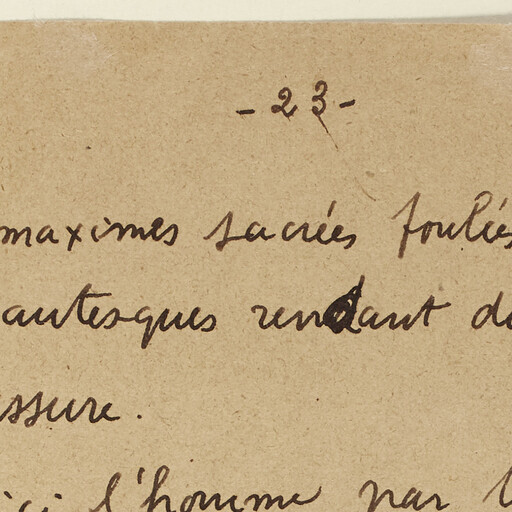 - 23 -
maximes sacrées foulés
autesques rendant d
ssure.
ici l'homme par l